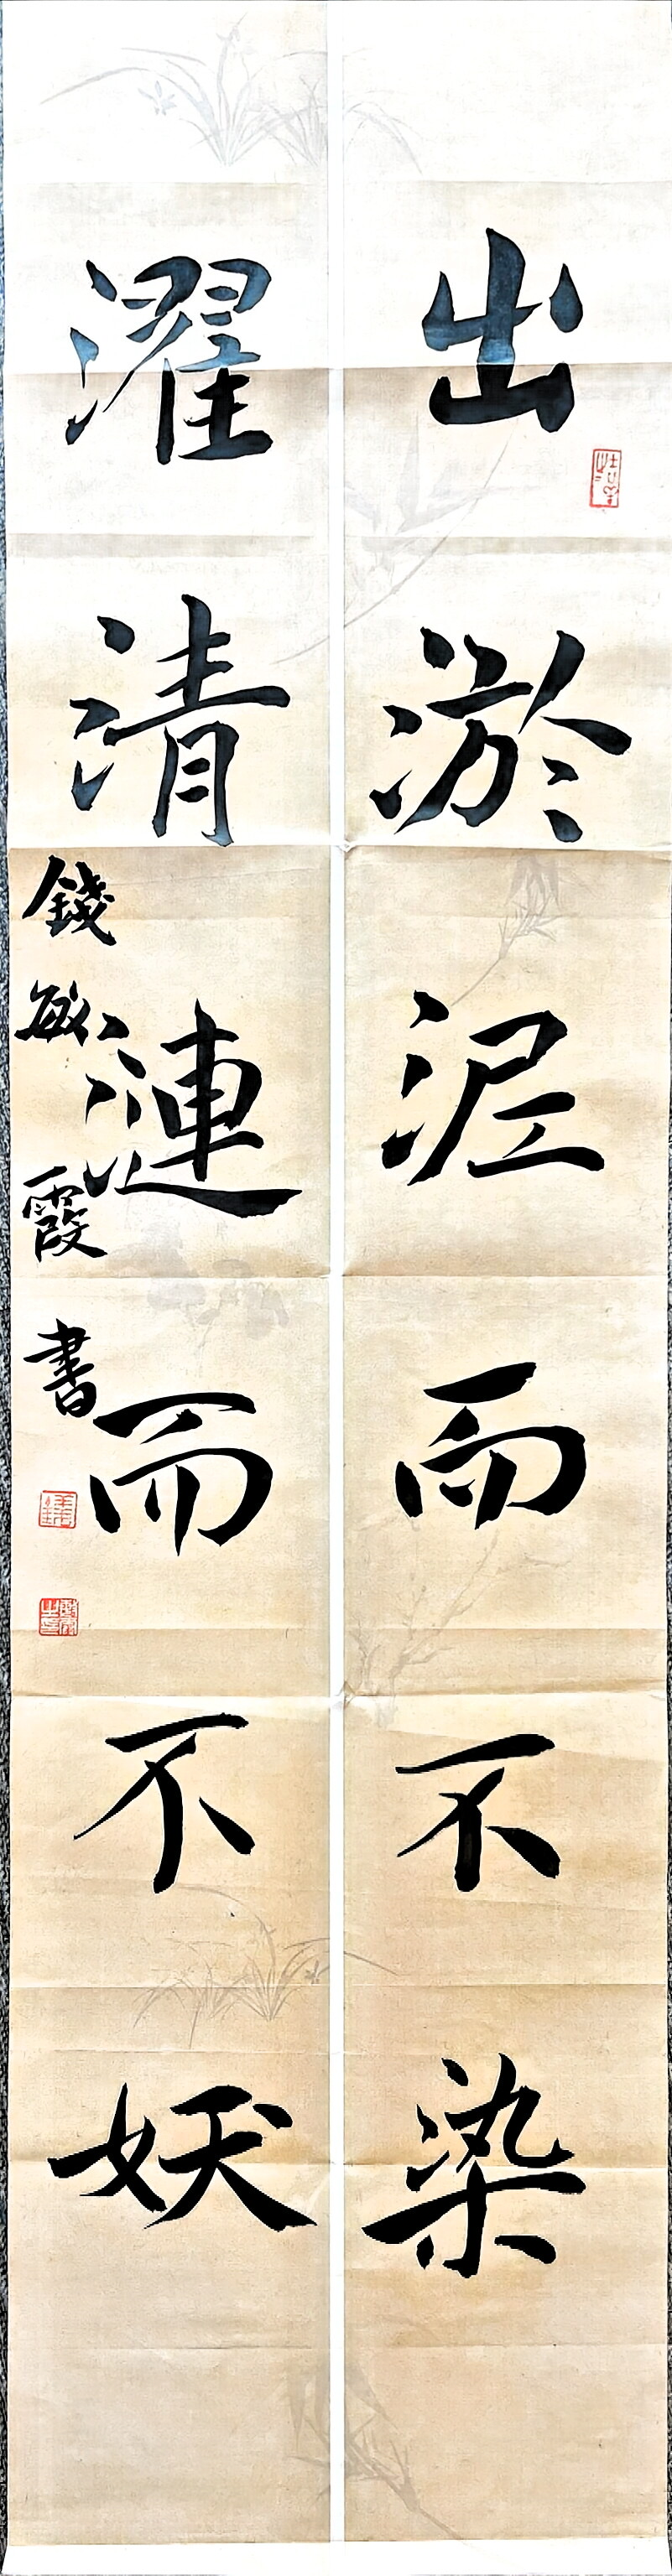 出淤泥而不染
濯清漣而不妖
錢敏霞書